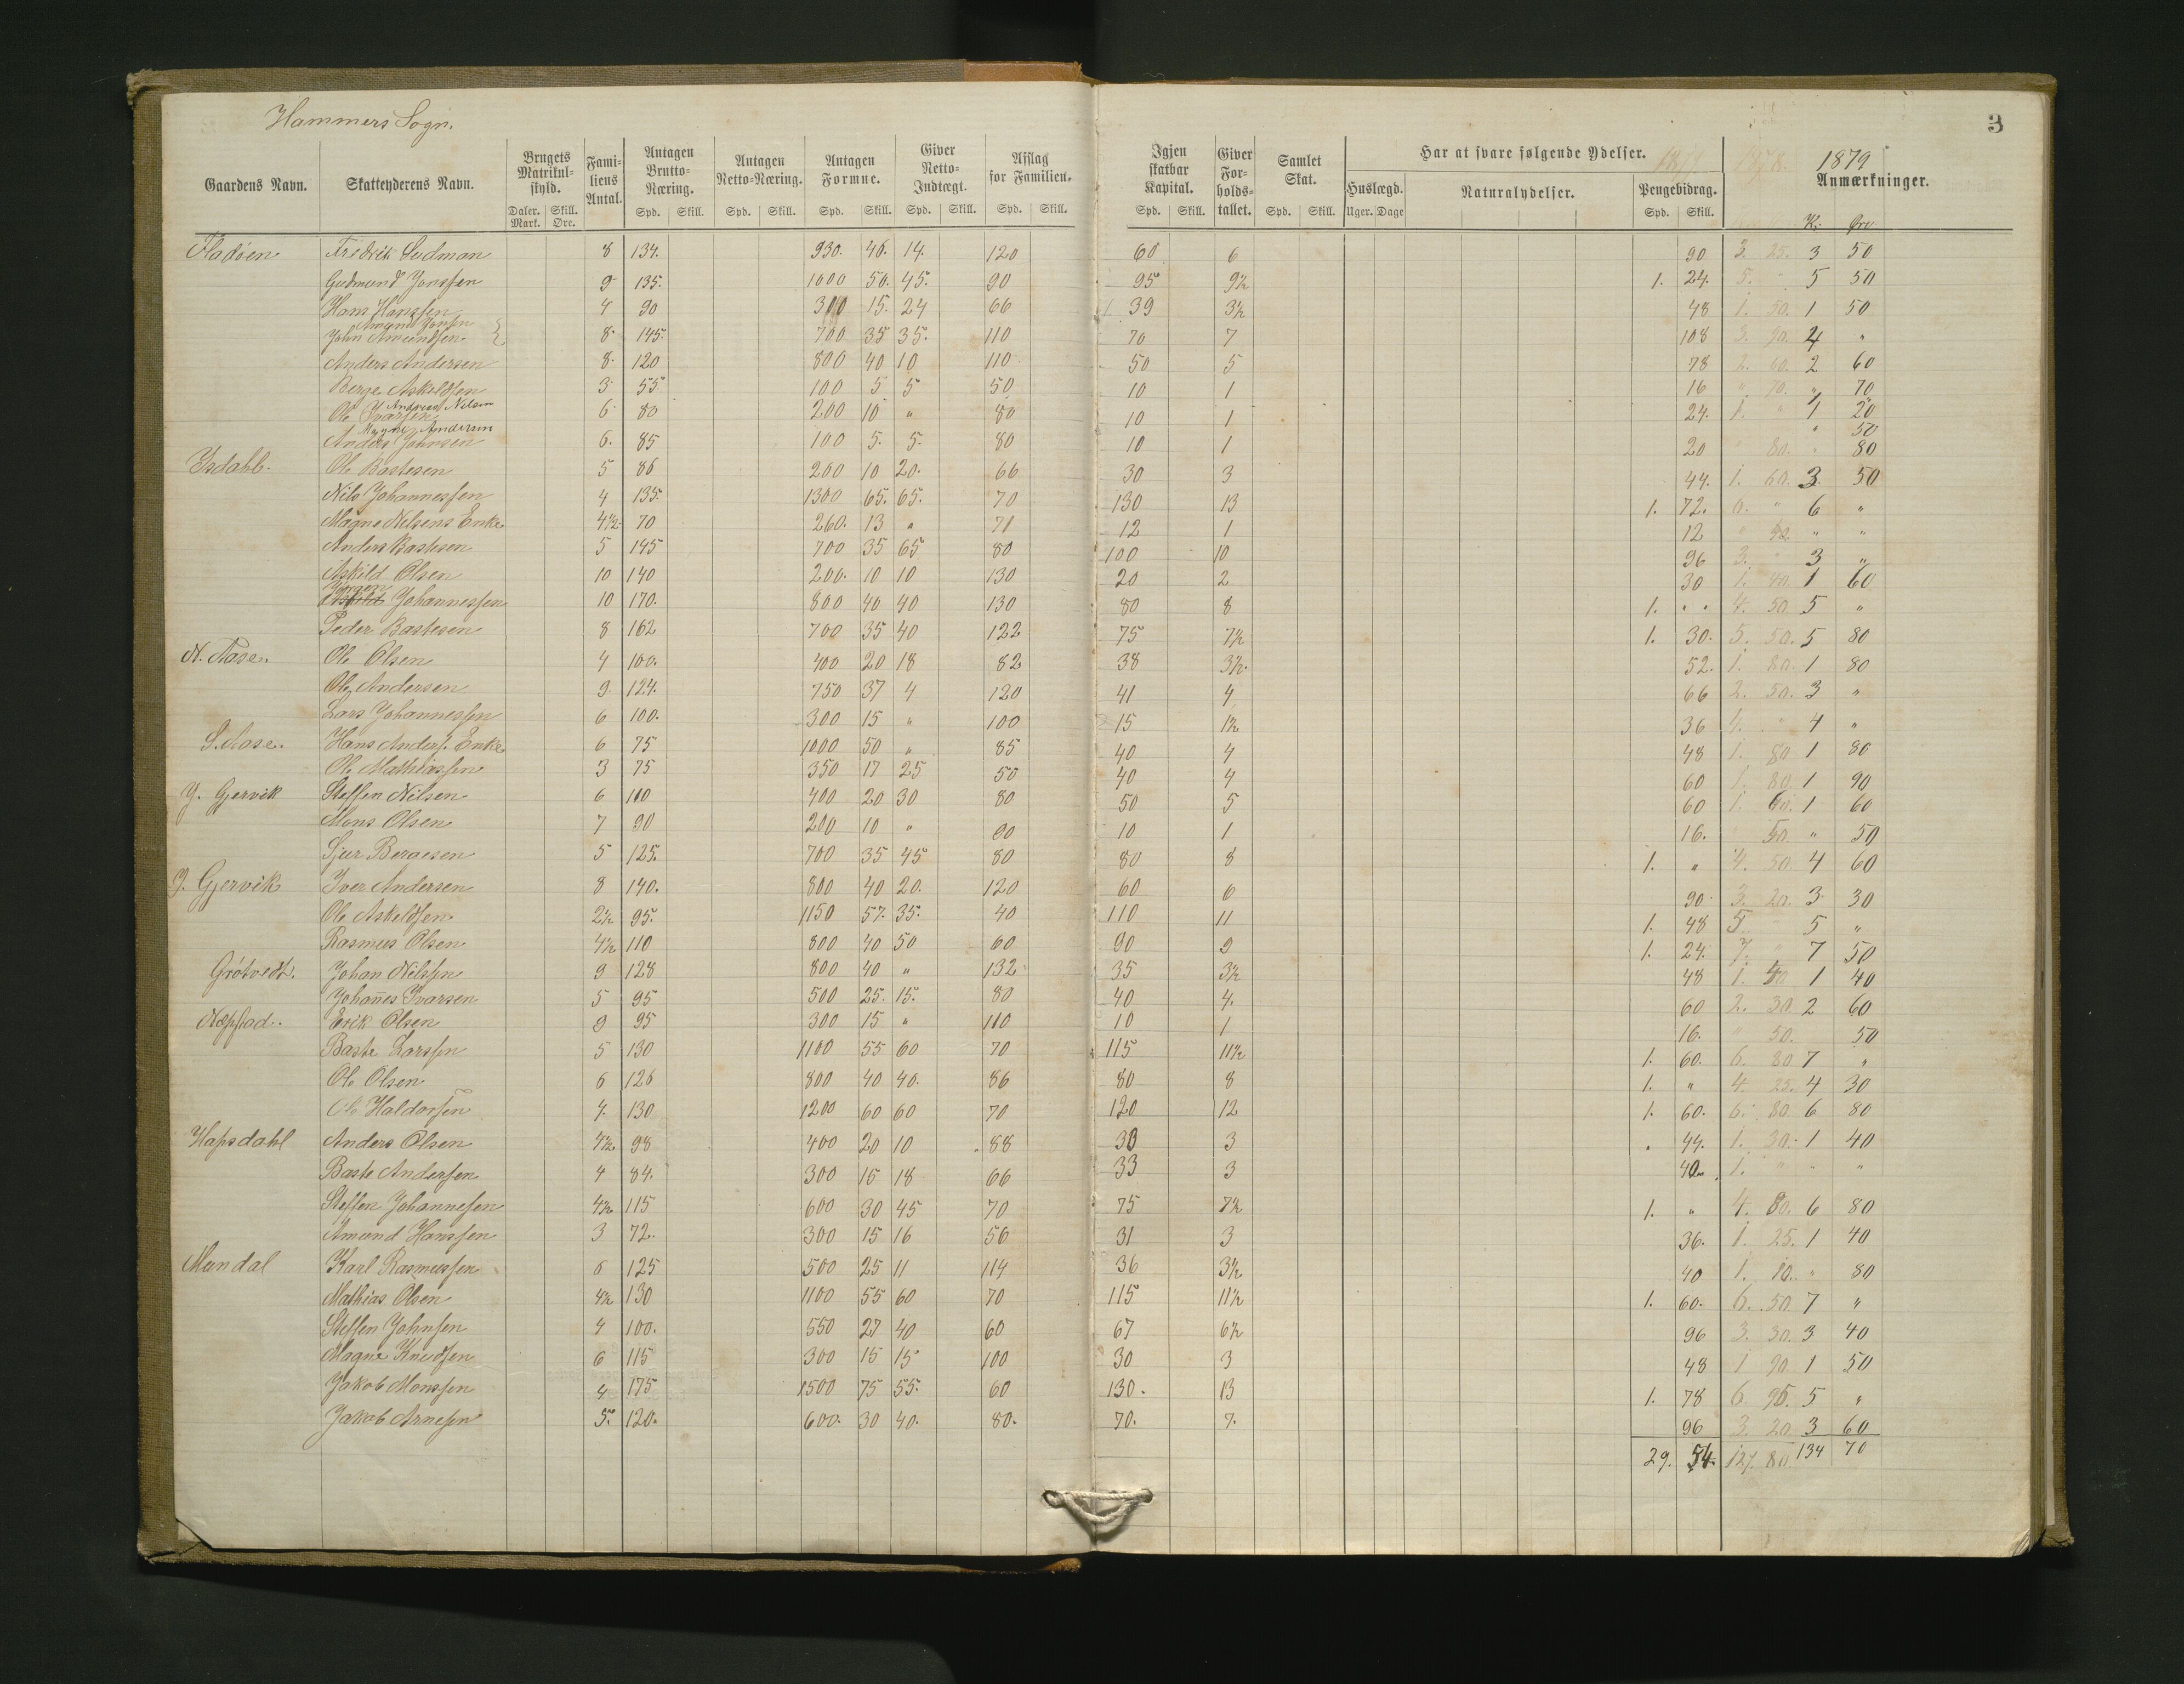 Hammers Sogn.
3
Gaardens Navn. Skatteyderens Navn. Brugets Matrikul-skyld. Fami-liens Antal. Antagen Brutto-Næring. Antagen Netto-Næring. Antagen Formue. Giver Netto-Indtægt. Afslag for Familien. Igjen skatbar Kapital. Giver For-holds-tallet. Samlet Skat. Har at svare følgende Ydelser. 1878. 1879
Huslægd. Naturalydelser. Pengebidrag. Anmærkninger.
Daler. Skill. Spd. Skill. Spd. Skill. Spd. Skill. Spd. Skill. Spd. Skill. Spd. Skill. Spd. Skill. Uger. Dage Spd. Skill.
Mark. Øre. Kr. Øre
Fladöen Fredrik Sudman 8 134. 930. 46. 14. 120 60 6 90 3. 25. 3 50
Gudmund Jonssen 9 135. 1000 50. 45. 90 95 9½ 1. 24. 5. " 5 50
Hans Hanssen 4 90 300 15. 24 66 39 3½ 48 1. 50. 1 50
Amund Jonsen
John Amundsen 8 145. 700 35 35. 110 70 7 108 3. 90. 4 "
Anders Andersen 8 120 800 40 10 110 50 5 78 2. 60. 2 60
Berge Askeldsen 3 55 100 5 5 50 10 1 16 " 70. " 70
Andreas Nilsen
Ole Ivarsen 6 80 200 10 " 80 10 1 24. 1. " 1 20
Magne Andersen " 50
Anders Johnsen 6. 85 100 5. 5. 80 10 1 20 " 80. " 80
Isdahl. Ole Bastesen 5 86 200 10 20. 66 30 3 44. 1. 60. 3. 50
Nils Johannessen 4 135. 1300 65. 65. 70 130 13 1. 72. 6. " 6 "
Magne Nilsens Enke 4½ 70 260. 13 " 71 12 1 12 " 90. " "
Anders Bastesen 5 145 700 35 65 80 100 10 96 3. " 3 "
Askild Olsen 10 140 200. 10 10 130 20 2 30 1. 40. 1 60
Jörgen
Askild Johannessen 10 170. 800 40 40 130 80 8 1. " " 4. 50. 5 "
Peder Bastesen 8 162 700 35 40 122 75 7½ 1. 30. 5. 50. 5 80
N. Aase. Ole Olsen 4 100. 400 20 18 82 38 3½. 52. 1. 80. 1 80
Ole Andersen 9 124. 750 37 4 120 41 4 66 2. 50. 3 "
Lars Johannessen 6 100. 300 15 " 100 15 1½ 36 4. " 4 "
S. Aase. Hans Anders. Enke 6 75 1000 50 " 85 40 4 48 1. 80 1 80
Ole Mathiassen 3 75 350 17 25 50 40 4 60 1. 80. 1 90
Y. Gjervik Steffen Nilsen 6 110 400 20 30 80 50 5 60 1. 60. 1 60
Mons Olsen 7 90 200 10 " 90 10 1 16. 50. " 50
Sjur Bergesen 5 125. 700 35 45 80 80 8 1. " 4. 50 4 60
I. Gjervik Iver Andersen 8 140. 800 40 20. 120 60 6 90 3. 20. 3 30
Ole Askeldsen 2½ 95. 1150 57. 35. 40 110 11 1. 48 5. 5 "
Rasmus Olsen 4½ 110 800 40 50 60 90 9 1. 24. 7. " 7 50
Grötvedt. Johan Nilssen 9 128 800 40 " 132 35 3½ 48 1. 40. 1 40
Johanes Ivarsen 5 95 500 25. 15. 80 40 4. 60 2. 30. 2 60
Næpstad. Erik Olsen 9 95 300 15 " 110 10 1 16. " 50. 50
Baste Larssen 5 130 1100 55 60 70 115 11½ 1. 60. 6. 80 7 "
Ole Olsen 6 126 800 40 40. 86 80 8 1. " 4. 25. 4 30
Ole Haldorsen 4. 130 1200 60 60 70 120 12 1. 60. 6. 80 6 80
Hapsdahl Anders Olsen 4½ 98 400 20 10 88 30 3 44. 1. 30. 1 40
Baste Andersen 4 84. 300 15 18 66 33 3 40. 1. " " "
Steffen Johannesen 4½ 115 600 30 45 70 75 7½ 1. " 4. 80. 6 80
Amund Hanssen 3 72. 300 15 16 56 31 3 36. 1. 25. 1 40
Mundal Karl Rasmussen 6 125 500 25 11 114 36 3½ 40 1. 10. " 80
Mathias Olsen 4½ 130 1100 55 60 70 115 11½ 1. 60. 6. 50. 7 "
Steffen Johnsen 4 100. 550 27 40 60 67 6½ 96 3. 30. 3 40
Magne Knudsen 6 115 300 15 15 100 30 3 48 1 90. 1 50
Jakob Monssen 4 175 1500 75 55. 60 130. 13 1. 78 6 95. 5 "
Jakob Arnesen 5. 120. 600. 30 40. 80. 70. 7. 96 3. 20. 3 60
29. 54. 127. 80. 134 70